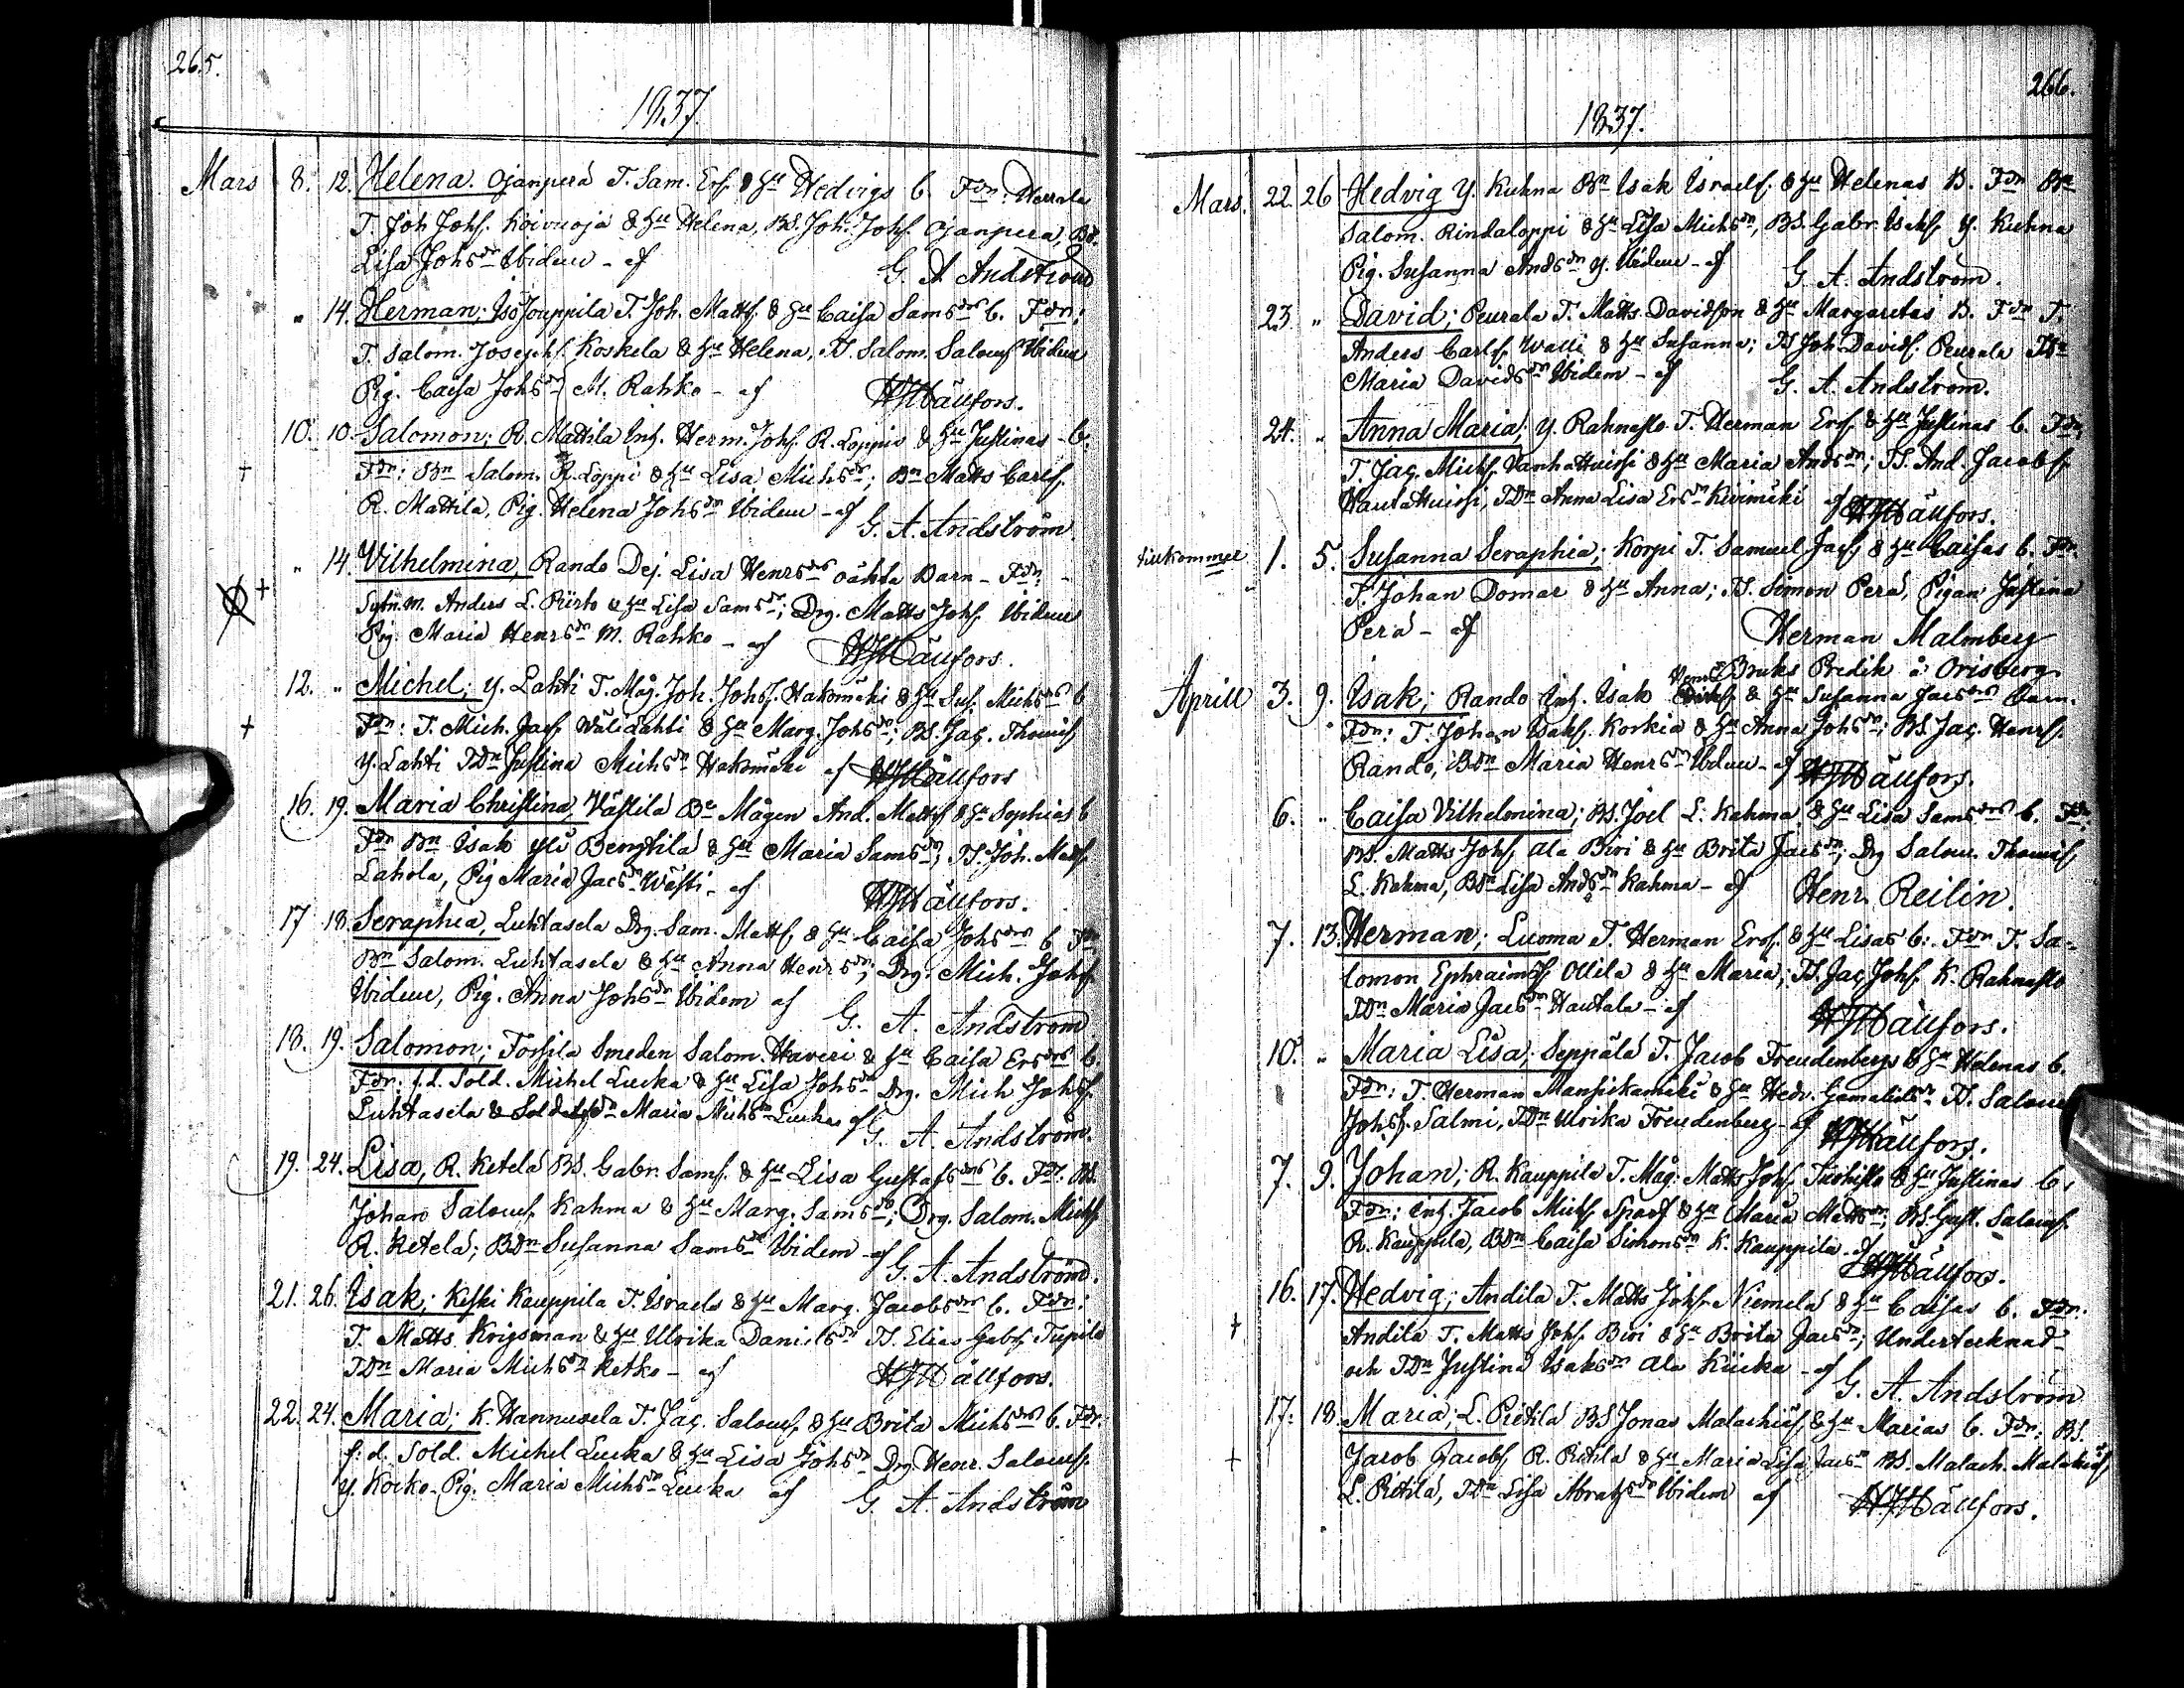 265.
1837.
Mars 8. 12. Helena. Ojanperä T. Sam. Ersſ. & Hu Hedvigs b. Fdr: Herrala
T. Joh Johsſ. Koivuoja & Hu Helena, BS. Joh. Johsſ. Ojanpera, BD.
Lisa Johsdr Ibidem - af G. A. Andström
" 14. Herman; Iso Jouppila T. Joh. Mattsſ. & Hu Caisa Samsdrs b. Fdr;
T. Salom. Josephsſ. Koskela & Hu Helena, TS. Salom. Salomsſ Ibidem
Pig. Caisa Johsdr M. Rahko - af HJHällfors.
10. 10. Salomon; R. Mattila Inh. Herm. Johsſ. R. Loppis & Hu Justinas b.
+ Fdr: Bn Salom. R. Loppi & Hu Lisa Michsdr; Bn Matts Carlsſ.
R. Mattila, Pig. Helena Johsdr Ibidem - af G. A. Andström.
" 14. Vilhelmina, Rando Dej. Lisa Henrsdrs oäkta Barn - Fdr: -
+ Sytn.m. Anders L. Piirto & Hu Lisa Samsdr; Drg. Matts Johsſ. Ibidem
Pig. Maria Henrsdr M. Rahko - af HJHällfors.
12. " Michel; Y. Lahti T. Måg. Joh. Johsſ. Hakomäki & Hu Sus. Michsdrs b
+ Fdr: T. Mich. Jacsſ. Välilahti & Hu Marg. Johsdr; BS. Jac. Thomsſ
Y. Lahti TDn Justina Michsdr Hakomäki af HJHällfors
16. 19. Maria Christina, Västilä Bn Mågen And. Mattsſ & Hu Sophias b
Fdr Bn Isak Yli Bengtilä & Hu Maria Samsdr, TS. Joh. Mattsſ
Lahola, Pig Maria Jacsdr Västi - af HJHällfors.
17 18. Seraphia, Luhtasela Drg. Sam. Mattsſ & Hu Caisa Johsdrs b Fdr,
Bn Salom. Luhtasela & Hu Anna Henrsdr; Drg. Mich. Johsſ.
Ibidem, Pig. Anna Johsdr Ibidem af G. A. Andström
18. 19. Salomon; Forsila Smeden Salom. Haveri & Hu Caisa Ersdrs b.
Fdr: f.d. Sold. Michel Lucka & Hu Lisa Johsdr Drg. Mich Johsſ.
Luhtasela & Maria Michsdr Lucka af G. A. Andström.
19. 24. Lisa, R. Ketelä BS. Gabr. Samsſ. & Hu Lisa Gustafsdrs b. Fdr: BS.
Johan Salomsſ. Kahma & Hu Marg. Samsdr; Drg. Salom. Michsſ
R. Ketelä; BDn Susanna Samsdr Ibidem af G. A. Andström.
21. 26. Isak; Keski Kauppila T. Israels & Hu Marg. Jacobsdrs b. Fdr:
T. Matts Krigsman & Hu Ulrika Danielsdr TS. Elias Gabrsſ. Tupila
TDn Maria Michsdr Ketko - af HJHällfors.
22. 24. Maria; K. Hannuxela T. Jac. Salomsſ. & Hu Brita Michsdrs b. Fdr:
f. d. Sold. Michel Lucka & Hu Lisa Johsdr Drg. Henr. Salomsſ.
Y. Korko - Pig. Maria Michsdr Lucka af G. A. Andström
266.
1837.
Mars. 22. 26 Hedvig Y. Kuhna Bn Isak Israelsſ. & Hu Helenas B. Fdr Bn
Salom. Rindaloppi & Hu Lisa Michsdr, BS. Gabr. Isaksſ. Y. Kuhna
Pig. Susanna Andsdr Y. Ibidem - af G. A. Andström.
23 " David; Peurala T. Matts Davidsson & Hu Margaretas B. Fdr T.
Anders Carlsſ. Walli & Hu Susanna; TS Joh Davidsſ. Peurala TDn
Maria Davidsdr Ibidem - af G. A. Andström.
24. " Anna Maria; Y. Rahnasto T. Herman Ersſ. & Hu Justinas b. Fdr,
T. Jac. Michsſ. Vanhatuissi & Hu Maria Andsdr; TS. And. Jacobsſ.
TDn Anna Lisa Ersdr Kivimäki af HJHällfors.
tillkommer 1. 5. Susanna Seraphia; Korpi T. Samuel Jacsſ & Hu Caisas b. Fdr.
T. Johan Domar & Hu Anna; TS. Simon Perä, Pigan Justina
Perä - af Herman Malmberg
Bruks Predik å Orisberg
Aprill 3. 9. Isak; Rando Inh. Isak Henrs & Hu Susanna Jacsdrs barn.
Fdr: T. Johan Isaksſ. Korkia & Hu Anna Johsdr; BS. Jac. Henrsſ.
Rando, BDn Maria Henrsdr Ibidem - af HJHällfors.
6. " Caisa Vilhelmina; BS. Joel L. Kahma & Hu Lisa Samsdrs b. Fdr:
BS. Matts Johsſ. Ala Biri & Hu Brita Jacsdr; Drg Salom. Thomsſ,
L. Kahma, BDn Lisa Andsdr Kahma - af Henr. Reilin.
7. 13. Herman; Luoma T. Herman Ersſ. & Hu Lisas b: Fdr T. Sa-
lomon Ephraimsſ. Ollila & Hu Maria; TS. Jac Johsſ. K. Rahnasto
TDn Maria Jacsdr Hautala - af HJHällfors.
10. " Maria Lisa; Seppälä T. Jacob Freudenbergs & Hu Helenas b.
Fdr: T. Herman Mansikamäki & Hu Hedv. Gamalielsdr TS. Salom
Johsſ. Salmi, TDn Ulrika Freudenberg - af HJHällfors.
7. 9. Johan; R. Kauppila T. Måg: Matts Johsſ. & Hu Justinas b,
Fdr: Inh. Jacob Michsſ. Spaaf & Hu Maria Mattsdr; BS. Gust. Salomsſ.
R. Kauppila, BDn Caisa Simonsdr K. Kauppila - af HJHällfors.
16. 17. Hedvig; Andila T. Matts Johsſ. Niemelä & Hu Caisas b. Fdr:
+ Andila T. Matts Johsſ. Biri & Hu Brita Jacsdr; Undertecknad
och TDn Justina Isaksdr Ala Kiicka - af G. A. Andström
17. 18. Maria; L. Pietilä BS Jonas Malachiæsſ & Hu Marias b. Fdr: BS.
+ Jacob Jacobsſ. R. Pietilä & Hu Maria Lisa Jacsdr BS. Malach. Malachiæsſ,
L. Pietilä, TDn Lisa Abrahsdr Ibidem af HJHällfors.